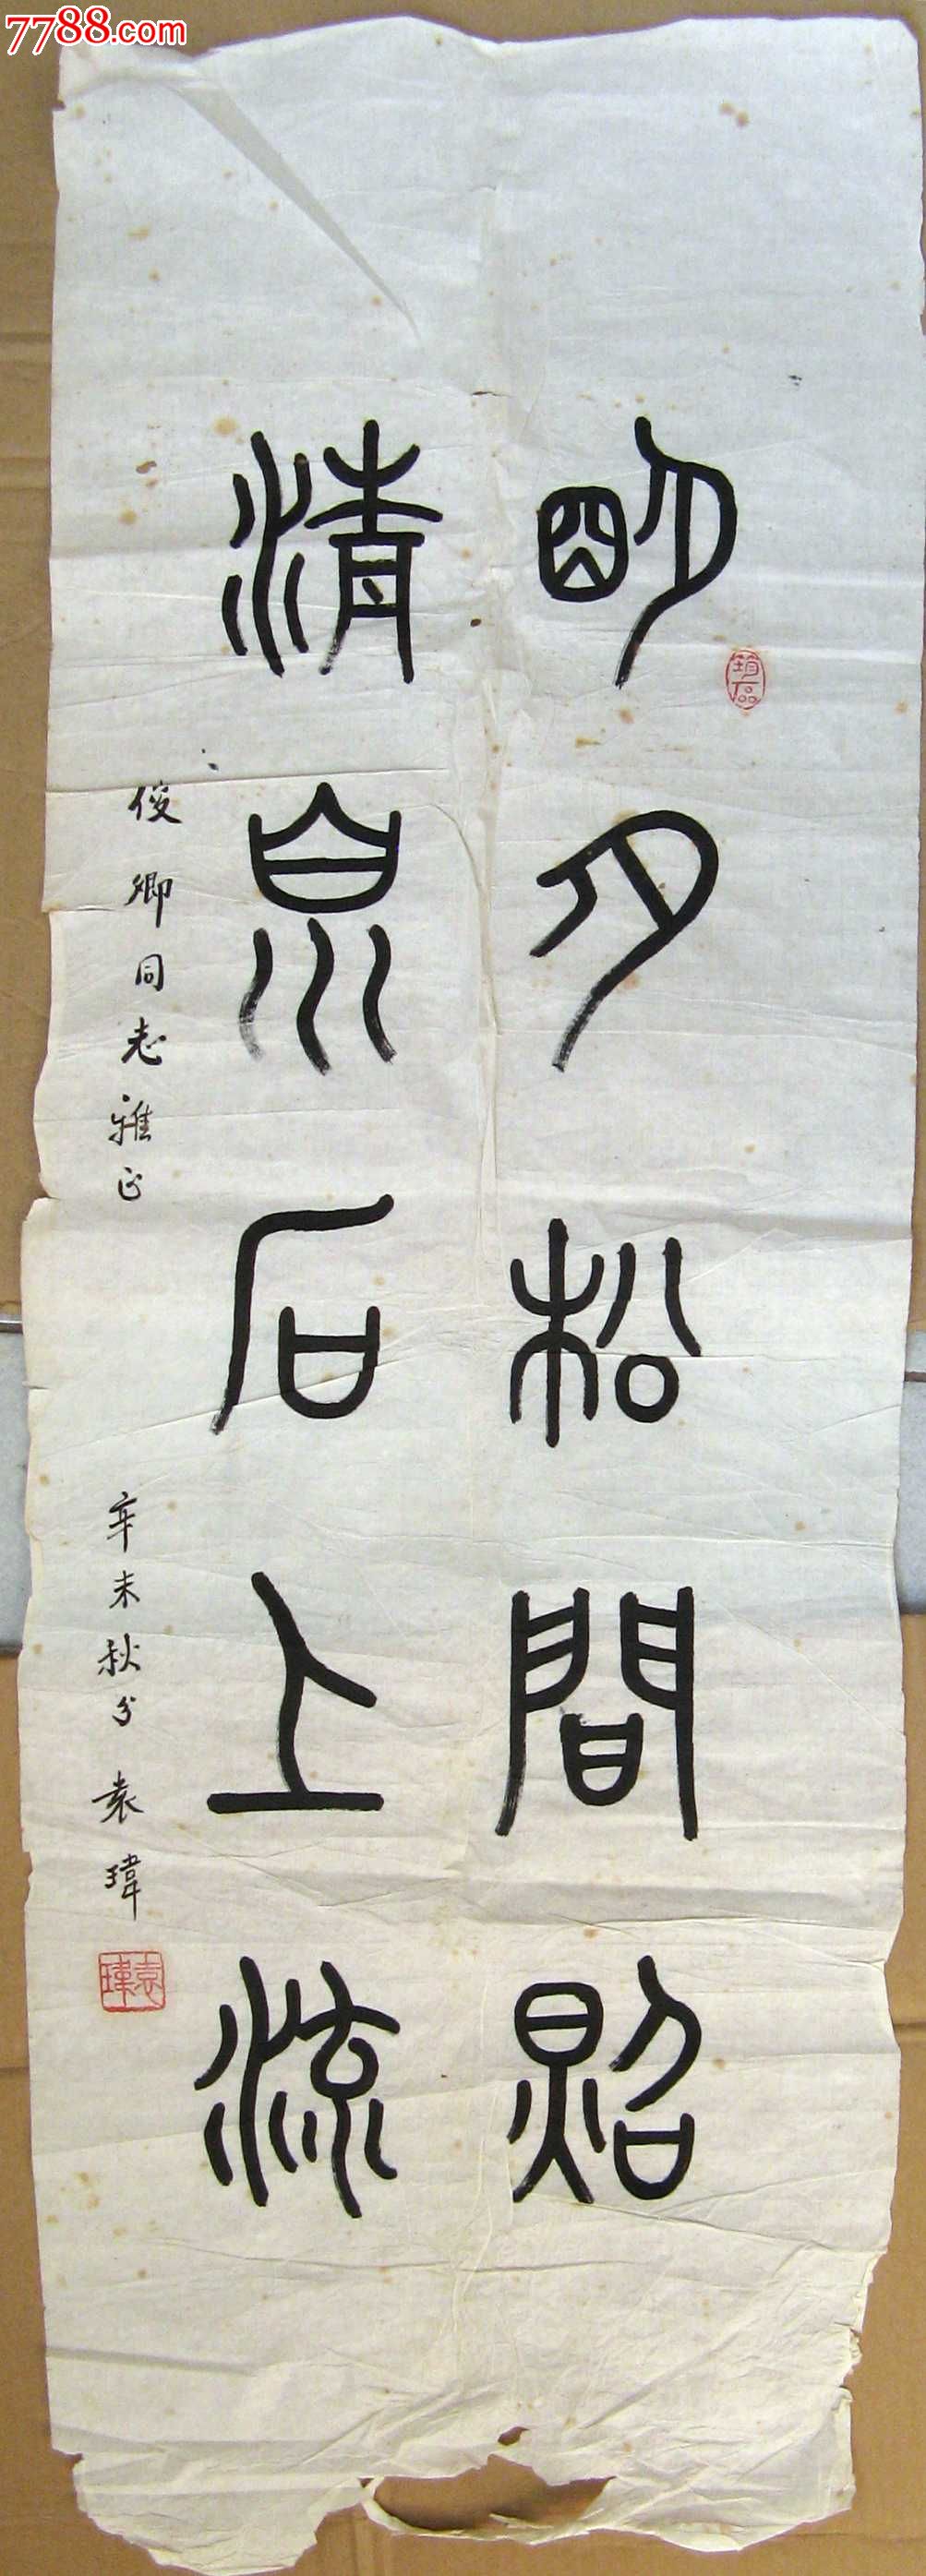 7788.com
明月松間照
清泉石上流
俊卿同志雅正
辛未秋分 袁瑋
袁瑋